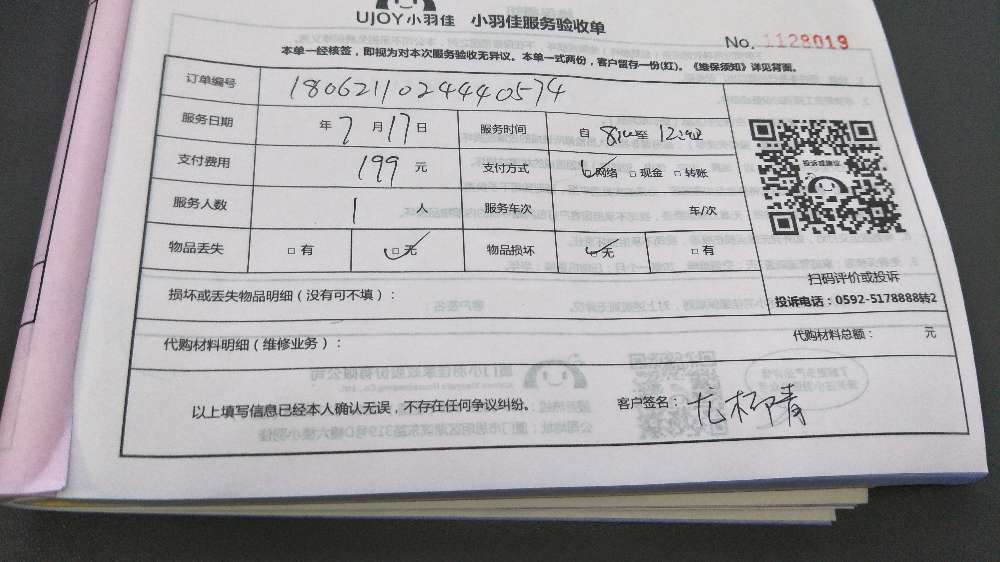 UJOY小羽佳 小羽佳服务验收单
No. 1128019
本单一经核签，即视为对本次服务验收无异议。本单一式两份，客户留存一份(红)。《维保须知》详见背面。
订单编号 1806211024440574
服务日期 年 7 月 17 日 服务时间 自 至
支付费用 199 元 支付方式 网络 □ 现金 □ 转账
服务人数 1 人 服务车次 车/次
物品丢失 □ 有 无 物品损坏 无 □ 有
投诉或建议
扫码评价或投诉
投诉电话：0592-5178888转2
损坏或丢失物品明细（没有可不填）：
代购材料明细（维修业务）： 代购材料总额： 元
以上填写信息已经本人确认无误，不存在任何争议纠纷。 客户签名：